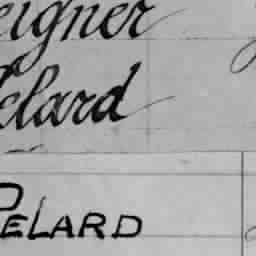 eigner
elard
PELARD